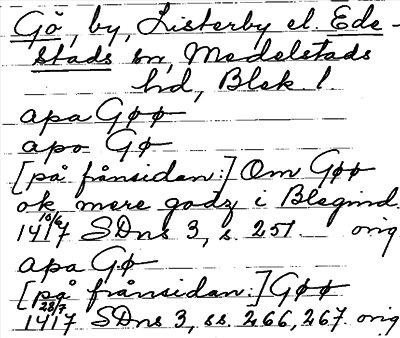 Gö, by, Listerby el. Ede-
stads sn, Medelstads
hd, Blek. l.
apa Gøø
apo Gø
[på frånsidan:] Om Gøø
ok mere godz i Blegind.
1417 10/6 SDns 3, s. 251 orig
apa Gø
[på frånsidan:] Gøø
1417 28/7 SDns 3, ss. 266, 267. orig